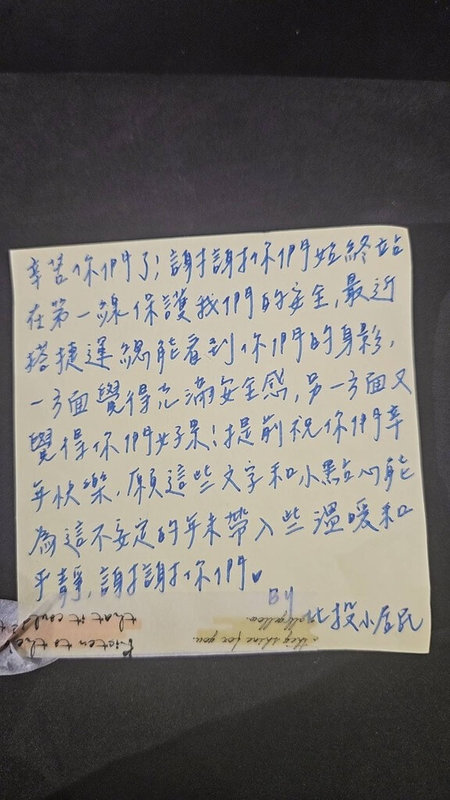 辛苦你們了！謝謝你們始終站
在第一線保護我們的安全，最近
搭捷運總能看到你們的身影，
一方面覺得充滿安全感，另一方面又
覺得你們好累！提前祝你們幸
年快樂，願這些文字和小點心能
為這不安定的年末帶入些溫暖和
平靜，謝謝你們♥
By 北投小居民
that it could
listen to the
yellow.
they shine for you.